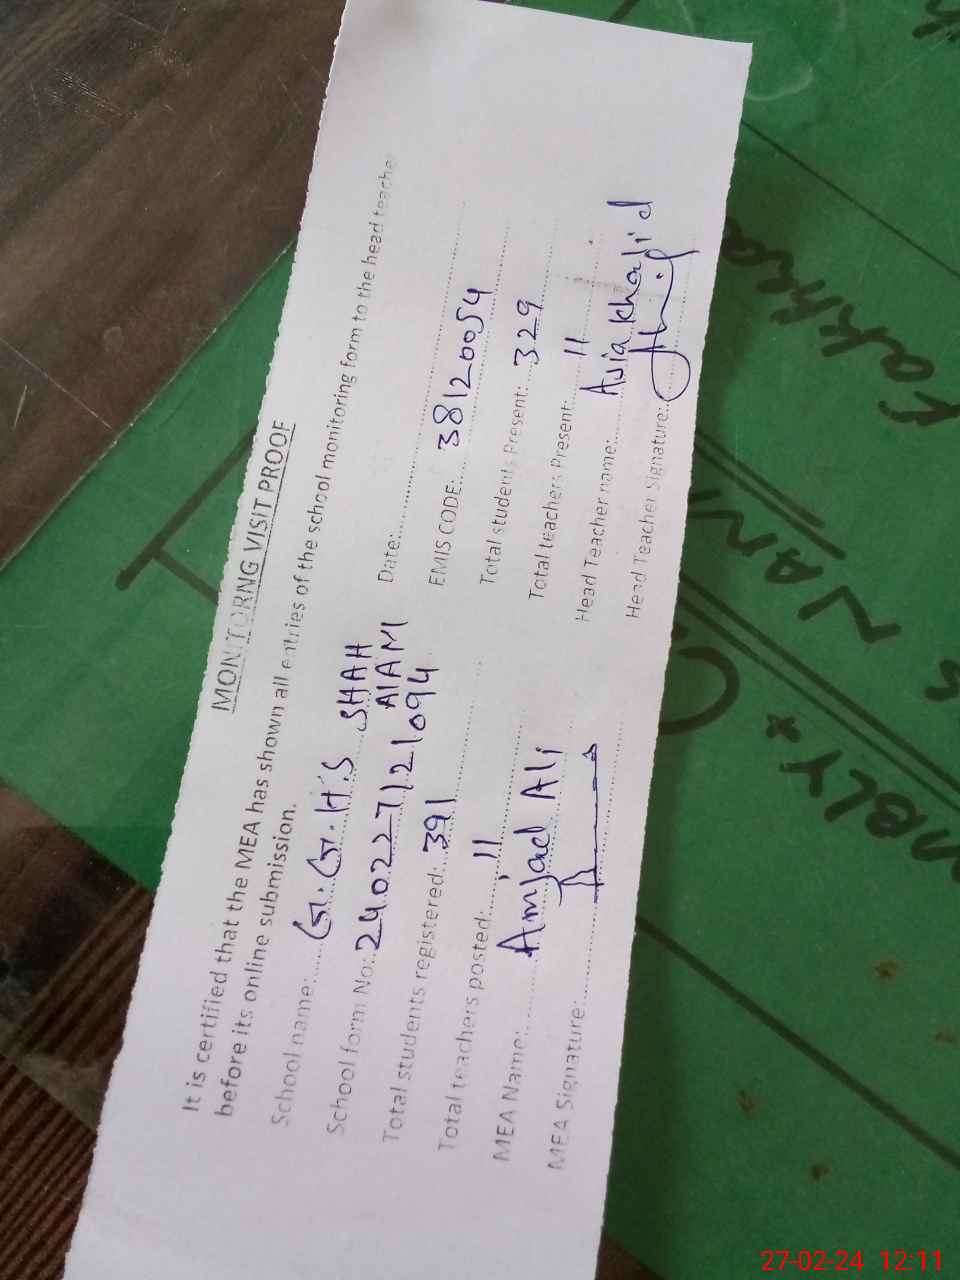 MONITORNG VISIT PROOF
It is certified that the MEA has shown all entries of the school monitoring form to the head teache
before its online submission.
School name:.....G.G.H.S SHAH
AlAM Date:
School form No:.240227121094 EMIS CODE: 38120054
Total students registered: 391 Total students Present: 329
Total teachers posted: 11 Total teachers Present: 11
MEA Name: Amjad Ali Head Teacher name: Asia khalid
MEA Signature: Head Teacher Signature:
Fakhra
NAM
MBLY x
27-02-24 12:11